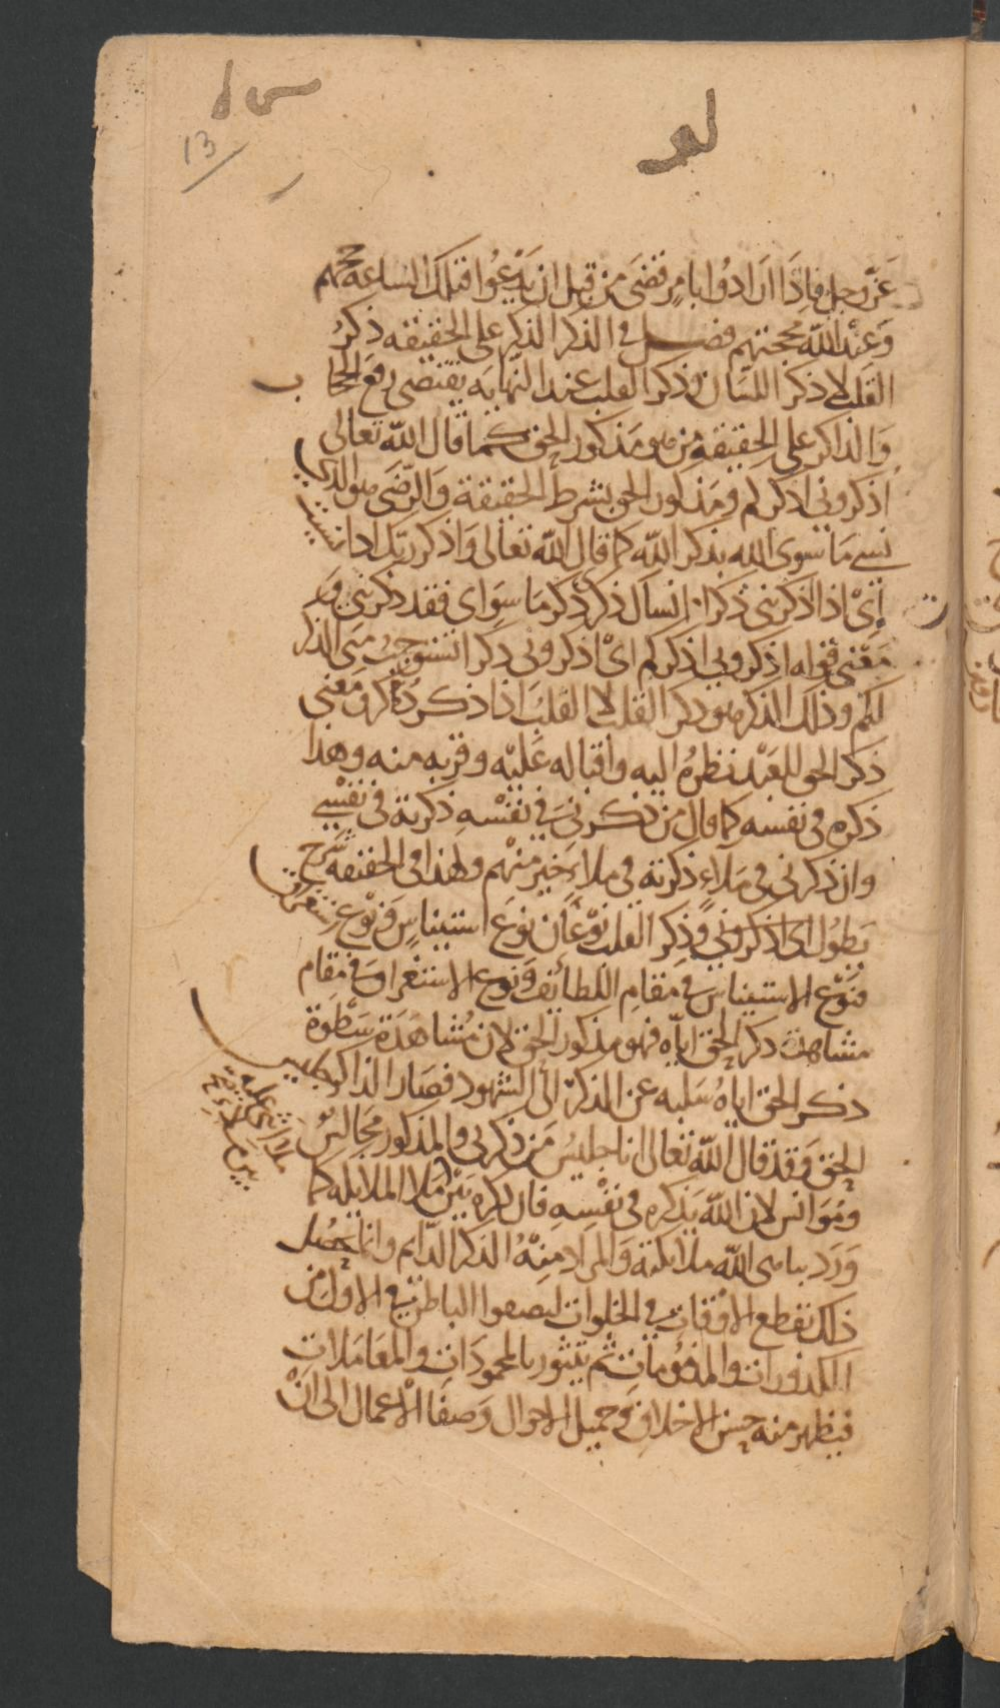 13
عَزّ وجل فاِذَا ارَادُوا بامرٍ قضىَ من قبل ان يَدْعُوا فتلك الساعه محبتهم
وَعِنْد اللّٰه محجتهم فصل في الذكر الذكر على الحقيقه ذكرُ
القَلب لا ذكر اللسَان وذكر القلب عند النهايَه يقتضى رفعَ الحجا ب
وَالذاكر على الحقيقةِ من هو مَذكور الحق كما قال اللّٰه تعالى
اذكرونى اذكركم ومَذكور الحق بشرط الحقيقة وَالرّضَى هو الذي
نسى مَا سوى اللّٰه بذكر اللّٰه كما قال اللّٰه تعَالى وَاذكر ربّك اذا نسيت
اىْ اذا ذكرتنى ذكرًا انساك ذكره ذكر مَا سِوَاى فقد ذكرتنى وَ
مَعْنى قوله اذكرونى اذكركم اىْ اذكرونى ذكرا تستوجبُ منى الذكر
لكم وذلك الذكر هو ذكر القلب لا القلبَ اذا ذكر ذكرَ ومَعْنى
ذكر الحق للعَبْد نظرهُ اليه واقباله عَليْه وقربه منه وهذا
ذكره فى نفسه كما قال من ذكرنىَ فى نفْسْهِ ذكرته فى نَفْسى
وان ذكرنى فى مَلاءٍ ذكرته فى ملاءٍ خيرٍ منْهم ولهذا فى الحقيقه شرح
يَطوُل اى اذكرونى وذِكر القلب نوْعَان نوعَ استيناسٍ وَنوْع استغراق
فنَوْع الاستيناس فى مَقامِ اللطائف وَنوع الاستغراق فى مَقام
مشاهدة ذكر الحق ايّاه فهو مذكور الحق لان مُشاهَدَة سَطْوَة
ذكر الحق اياهُ سَلبه عن الذكر الى الشهود فصَار الذاكر جليس
الحق وَقد قال اللّٰه تعَالى انا جليسُ مَن ذكرنى والمذكور مجَالِسُ
ومُوَانس لان اللّٰه يَذكره فى نفْسِهِ فان ذكره بَيْن مَلا الملايكه كما
وَرَد يباهى اللّٰه ملائكته وَالمراد مِنْهُ الذكر الدّايم وانما جعل
ذلك تقطع الاوْقات فى الخلوات ليصفوا الباطن فى الاول من
الكدورات والمذمُومات ثم يتنور بالمحمودَات والمعَامَلات
فيظهر منه حسن الاخلاق وَجميل الاحوال وَصفَا الاعمال الى انْ